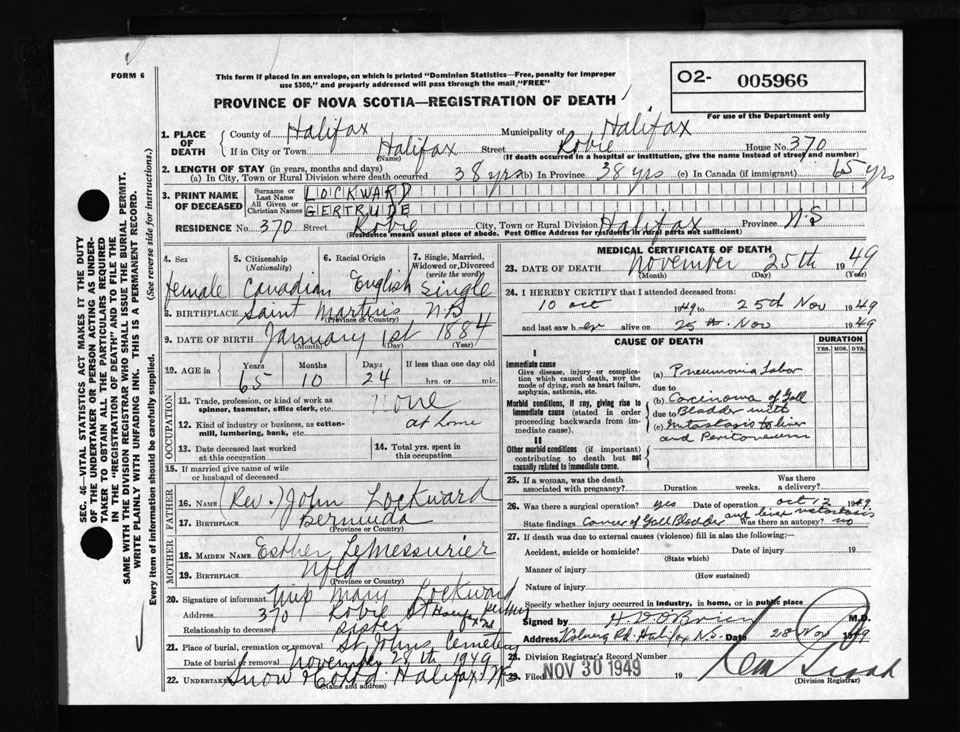 FORM 6
This form if placed in an envelope, on which is printed "Dominion Statistics—Free, penalty for improper
use $300," and properly addressed will pass through the mail "FREE"
O2- 005966
For use of the Department only
PROVINCE OF NOVA SCOTIA—REGISTRATION OF DEATH
1. PLACE OF DEATH
County of Halifax Municipality of Halifax
If in City or Town Halifax Street Robie House No. 370
(Name) (If death occurred in a hospital or institution, give the name instead of street and number)
2. LENGTH OF STAY (in years, months and days)
(a) In City, Town or Rural Division where death occurred 38 yrs (b) In Province 38 yrs (c) In Canada (if immigrant) 65 yrs
3. PRINT NAME OF DECEASED
Surname or Last Name LOCKWARD
All Given or Christian Names GERTRUDE
RESIDENCE No. 370 Street Robie City, Town or Rural Division Halifax Province N.S
(Residence means usual place of abode. Post Office Address for residents in rural parts not sufficient)
4. Sex
female
5. Citizenship (Nationality)
Canadian
6. Racial Origin
English
7. Single, Married, Widowed or Divorced (write the word)
Single
8. BIRTHPLACE Saint Martins N.B
(Province or Country)
9. DATE OF BIRTH January 1st 1884
(Month) (Day) (Year)
10. AGE in Years Months Days If less than one day old
65 10 24 hrs. or min.
OCCUPATION
11. Trade, profession, or kind of work as spinner, teamster, office clerk, etc. none
12. Kind of industry or business, as cotton-mill, lumbering, bank, etc. at home
13. Date deceased last worked at this occupation
14. Total yrs. spent in this occupation
15. If married give name of wife or husband of deceased
FATHER
16. NAME (Rev.) John Lockward
17. BIRTHPLACE Bermuda
(Province or Country)
MOTHER
18. MAIDEN NAME Esther LeMessurier
19. BIRTHPLACE Nfld
(Province or Country)
20. Signature of informant Miss Mary Lockward
Address 370 Robie St
Relationship to deceased sister
21. Place of burial, cremation or removal St Johns Cemetery
Date of burial or removal November 28th 1949
22. Undertaker Snow & Co Ltd. Halifax N.S.
(Name and address)
MEDICAL CERTIFICATE OF DEATH
23. DATE OF DEATH November 25th 1949
(Month) (Day) (Year)
24. I HEREBY CERTIFY that I attended deceased from:
10 Oct 1949 to 25th Nov 1949
and last saw her alive on 25th Nov 1949
CAUSE OF DEATH
DURATION
YRS. MOS. DYS.
I
Immediate cause
Give disease, injury or complication which caused death, not the mode of dying, such as heart failure, asphyxia, asthenia, etc.
(a) Pneumonia Lobar
due to
Morbid conditions, if any, giving rise to immediate cause (stated in order proceeding backwards from immediate cause).
(b) Carcinoma of Gall
due to Bladder with
(c) metastasis to liver
and Peritoneum
II
Other morbid conditions (if important) contributing to death but not causally related to immediate cause.
25. If a woman, was the death associated with pregnancy? Duration weeks. Was there a delivery?
26. Was there a surgical operation? yes Date of operation Oct 12 1949
State findings Cancer of Gall Bladder and liver metastasis Was there an autopsy? no
27. If death was due to external causes (violence) fill in also the following:—
Accident, suicide or homicide? Date of injury 19
(State which)
Manner of injury
(How sustained)
Nature of injury
Specify whether injury occurred in industry, in home, or in public place
Signed by H. D. O'Brien M.D.
Address Halifax N.S. Date 28 Nov 1949
28. Division Registrar's Record Number
29. Filed NOV 30 1949 19
(Division Registrar)
SEC. 46—VITAL STATISTICS ACT MAKES IT THE DUTY
OF THE UNDERTAKER OR PERSON ACTING AS UNDER-
TAKER TO OBTAIN ALL THE PARTICULARS REQUIRED
IN THE "REGISTRATION OF DEATH" AND TO FILE THE
SAME WITH THE DIVISION REGISTRAR WHO SHALL ISSUE THE BURIAL PERMIT.
WRITE PLAINLY WITH UNFADING INK. THIS IS A PERMANENT RECORD.
Every item of information should be carefully supplied. (See reverse side for instructions.)